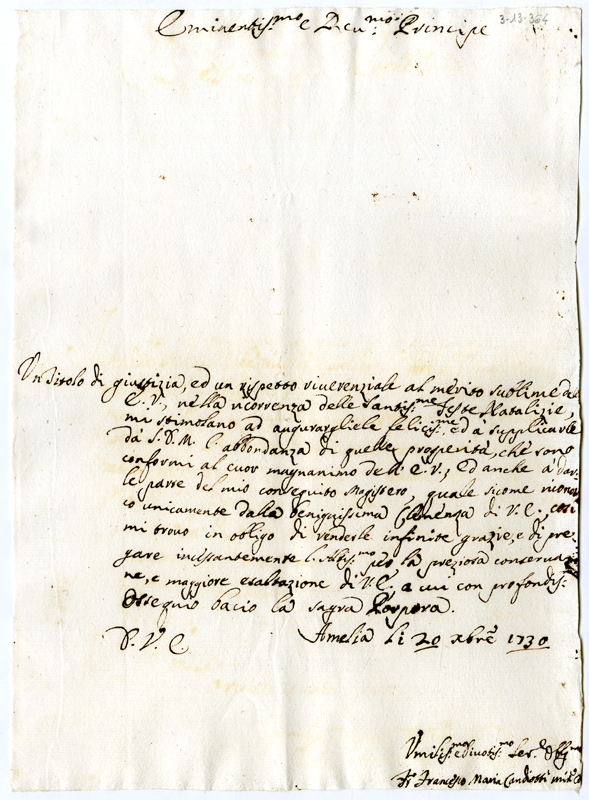 Eminentiss.mo e Reu.mo Principe
3-13-364
Vn Titolo di giustizia, ed un rispetto riuerenziale al merito sublime del
E. V., nella ricorrenza delle Santiss.me Feste Natalizie,
mi stimolano ad augurargliele feliciss.me, ed à supplicarle
da S. D. M. l'abbondanza di quelle prosperità, che sono
conformi al cuor magnanimo dell'E. V., ed anche à dar-
le parte del mio conseguito Magistero, quale sicome ricono
co unicamente dalla benignissima Clemenza di V. E., così
mi trovo in obligo di renderle infinite grazie, e di pre-
gare incessantemente l'Altiss.mo per la preziosa conservazio
ne, e maggiore esaltazione di V. E., a cui con profondis:
ossequio bacio la sagra Porpora.
D. V. E. Amelia li 20 xbrẽ 1730
Vmiliss.mo e Diuotiss.mo Ser.
Fr. Francesco Maria Candiotti